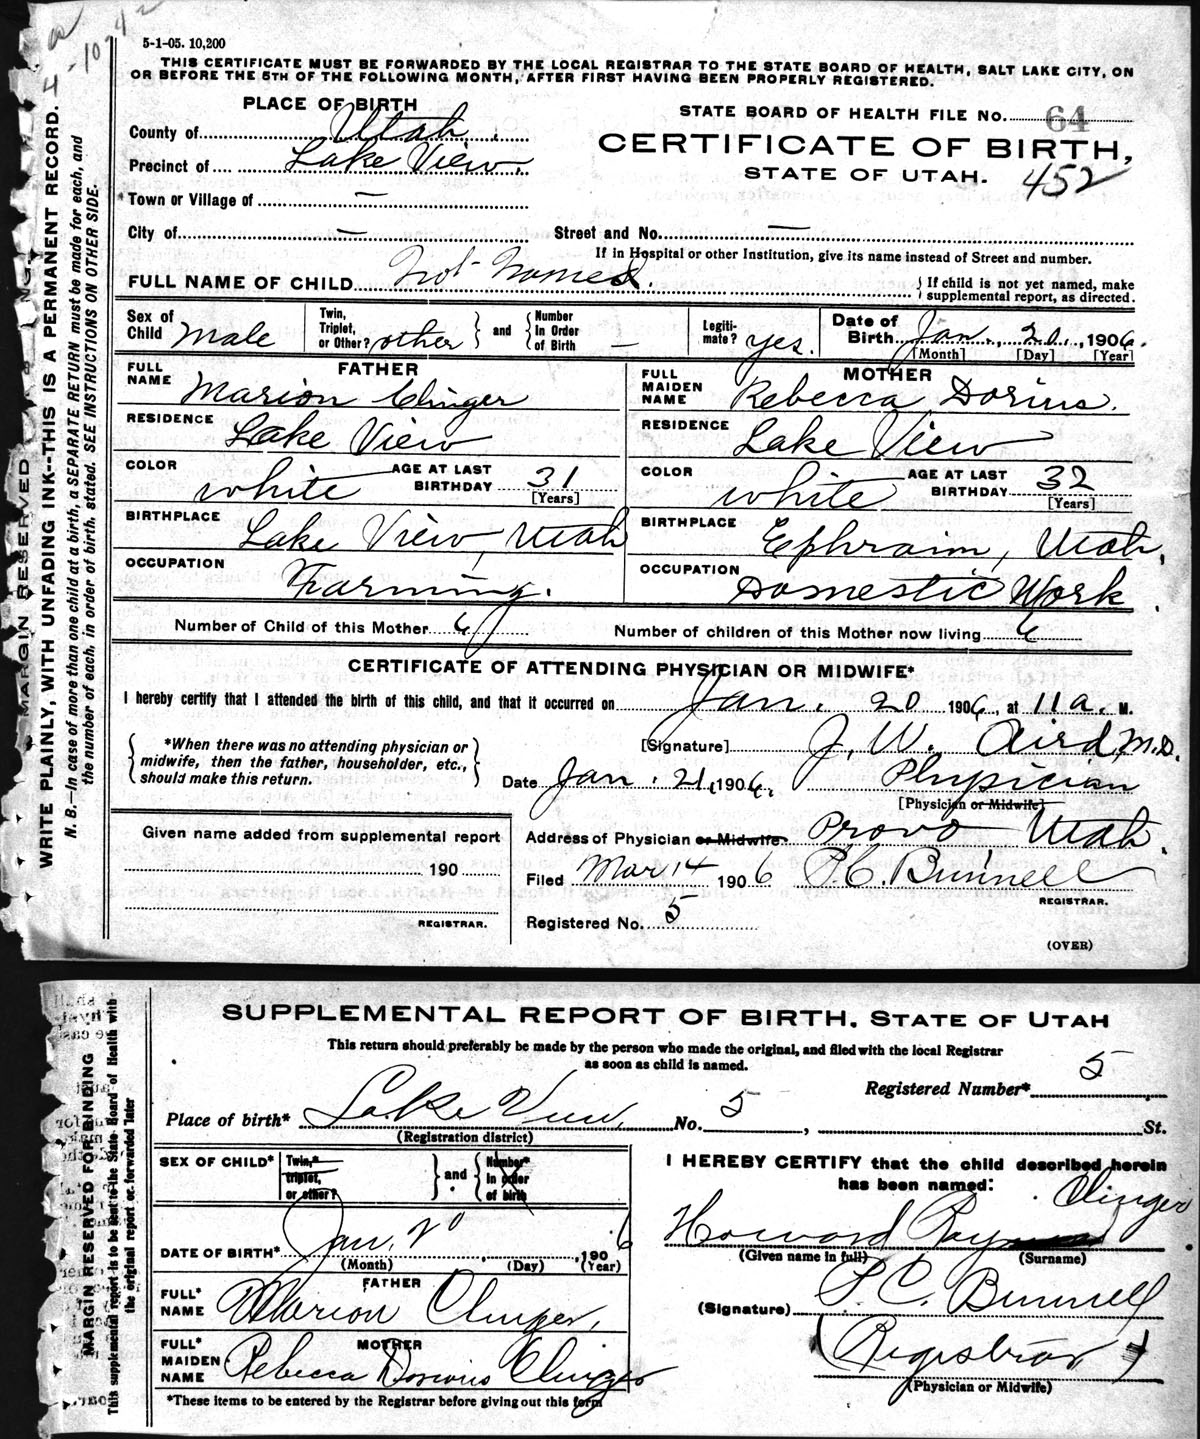 5-1-05. 10,200
THIS CERTIFICATE MUST BE FORWARDED BY THE LOCAL REGISTRAR TO THE STATE BOARD OF HEALTH, SALT LAKE CITY, ON
OR BEFORE THE 5TH OF THE FOLLOWING MONTH, AFTER FIRST HAVING BEEN PROPERLY REGISTERED.
PLACE OF BIRTH
STATE BOARD OF HEALTH FILE No. 64
County of Utah
CERTIFICATE OF BIRTH,
Precinct of Lake View.
STATE OF UTAH. 452
Town or Village of —
City of — Street and No. —
If in Hospital or other Institution, give its name instead of Street and number.
FULL NAME OF CHILD Not Named. { If child is not yet named, make
supplemental report, as directed.
Sex of
Child Male
Twin,
Triplet,
or Other? other } and { Number
In Order
of Birth —
Legiti-
mate? yes.
Date of
Birth Jan. 20, 1906.
[Month] [Day] [Year]
FATHER
FULL
NAME Marion Clinger
MOTHER
FULL
MAIDEN
NAME Rebecca Dorius.
RESIDENCE Lake View
RESIDENCE Lake View
COLOR white AGE AT LAST
BIRTHDAY 31
[Years]
COLOR white AGE AT LAST
BIRTHDAY 32
[Years]
BIRTHPLACE Lake View, Utah
BIRTHPLACE Ephraim, Utah,
OCCUPATION Farming.
OCCUPATION Domestic Work.
Number of Child of this Mother 6 Number of children of this Mother now living 6
CERTIFICATE OF ATTENDING PHYSICIAN OR MIDWIFE*
I hereby certify that I attended the birth of this child, and that it occurred on Jan. 20 1906, at 11 a. M.
{ *When there was no attending physician or
midwife, then the father, householder, etc.,
should make this return. }
[Signature] J. W. Aird, M.D.
Date Jan. 21, 1906. Physician
[Physician or Midwife]
Given name added from supplemental report
190
REGISTRAR.
Address of Physician or Midwife Provo Utah.
Filed Mar 14 1906 P. C. Bunnell
REGISTRAR.
Registered No. 5
(OVER)
WRITE PLAINLY, WITH UNFADING INK--THIS IS A PERMANENT RECORD.
N. B.—In case of more than one child at a birth, a SEPARATE RETURN must be made for each, and
the number of each, in order of birth, stated. SEE INSTRUCTIONS ON OTHER SIDE.
MARGIN RESERVED
SUPPLEMENTAL REPORT OF BIRTH. STATE OF UTAH
This return should preferably be made by the person who made the original, and filed with the local Registrar
as soon as child is named.
Registered Number* 5
Place of birth* Lake View, No. 5, St.
(Registration district)
SEX OF CHILD* Twin,*
triplet,
or other? } and { Number*
in order
of birth
I HEREBY CERTIFY that the child described herein
has been named:
Howard Ray Clinger
(Given name in full) (Surname)
DATE OF BIRTH* Jan. 20, 1906
(Month) (Day) (Year)
FATHER
FULL*
NAME Marion Clinger,
(Signature) P. C. Bunnell
MOTHER
FULL*
MAIDEN
NAME Rebecca Dorius Clinger
(Registrar)
(Physician or Midwife)
*These items to be entered by the Registrar before giving out this form
MARGIN RESERVED FOR BINDING
This supplemental report is to be sent to the State Board of Health with
the original report or forwarded later